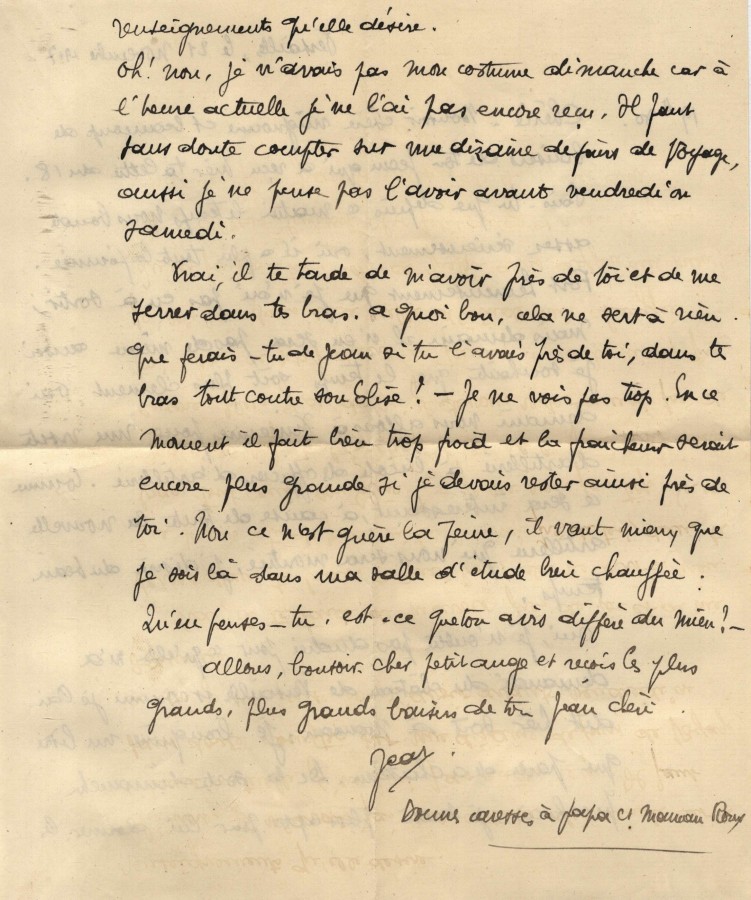 renseignements qu'elle désire.
Oh! non, je n'avais pas mon costume dimanche car à
l'heure actuelle je ne l'ai pas encore reçu. Il faut
sans doute compter sur une dizaine de jours de voyage,
aussi je ne pense pas l'avoir avant vendredi ou
samedi.
Vrai, il te tarde de m'avoir près de toi et de me
serrer dans tes bras. a quoi bon, cela ne sert à rien.
que ferais-tu de Jean si tu l'avais près de toi, dans tes
bras tout contre son Elise! - Je ne vois pas trop. En ce
moment il fait bien trop froid et la fraicheur serait
encore plus grande si je devais rester ainsi près de
toi. Non ce n'est guère la peine, il vaut mieux que
je sois là dans ma salle d'étude bien chauffée.
Qu'en penses-tu. est-ce que ton avis diffère du mien! -
allons, bonsoir cher petit ange et reçois les plus
grands, plus grands baisers de ton Jean chéri.
Jean.
Bonnes caresses à papa et Maman Roux